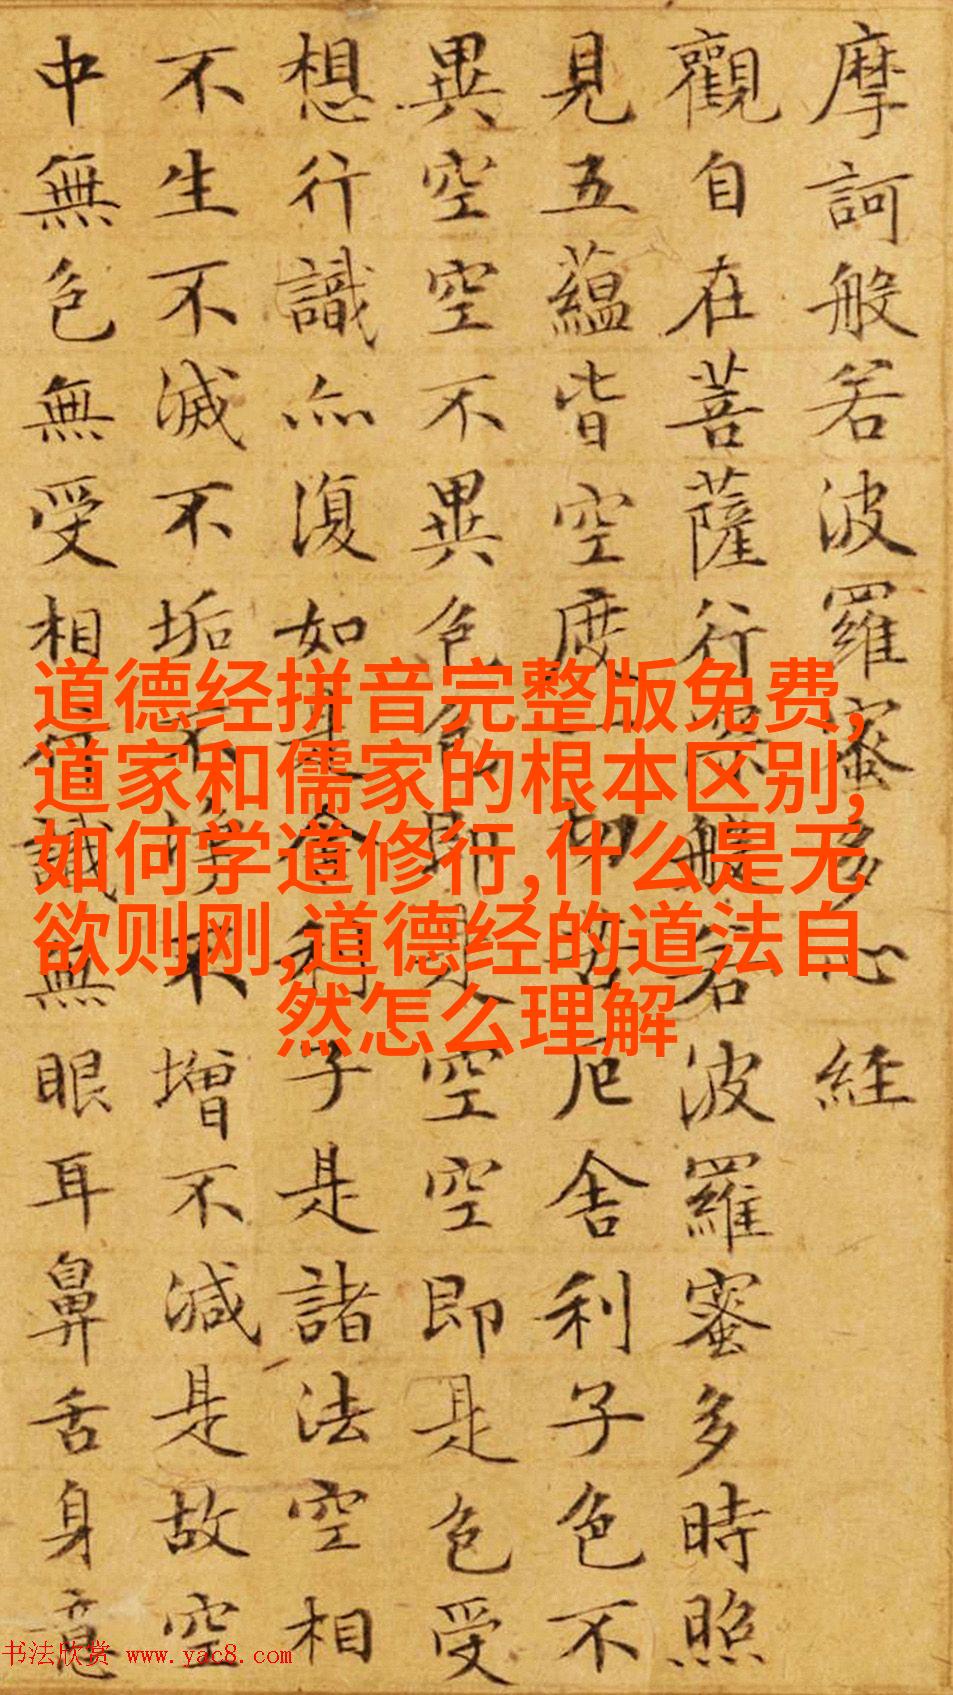 摩訶般若波羅蜜多心經
觀自在菩薩行深般若波羅蜜多時照
見五蘊皆空度一切苦厄舍利子色不
異空空不異色色即是空空即是色受
想行識亦復如是舍利子是諸法空相
不生不滅不垢不淨不增不減是故空
中無色無受想行識無眼耳鼻舌身意
道德经拼音完整版免费,
道家和儒家的根本区别,
如何学道修行,什么是无
欲则刚,道德经的道法自
然怎么理解
书法欣赏 www.yac8.com